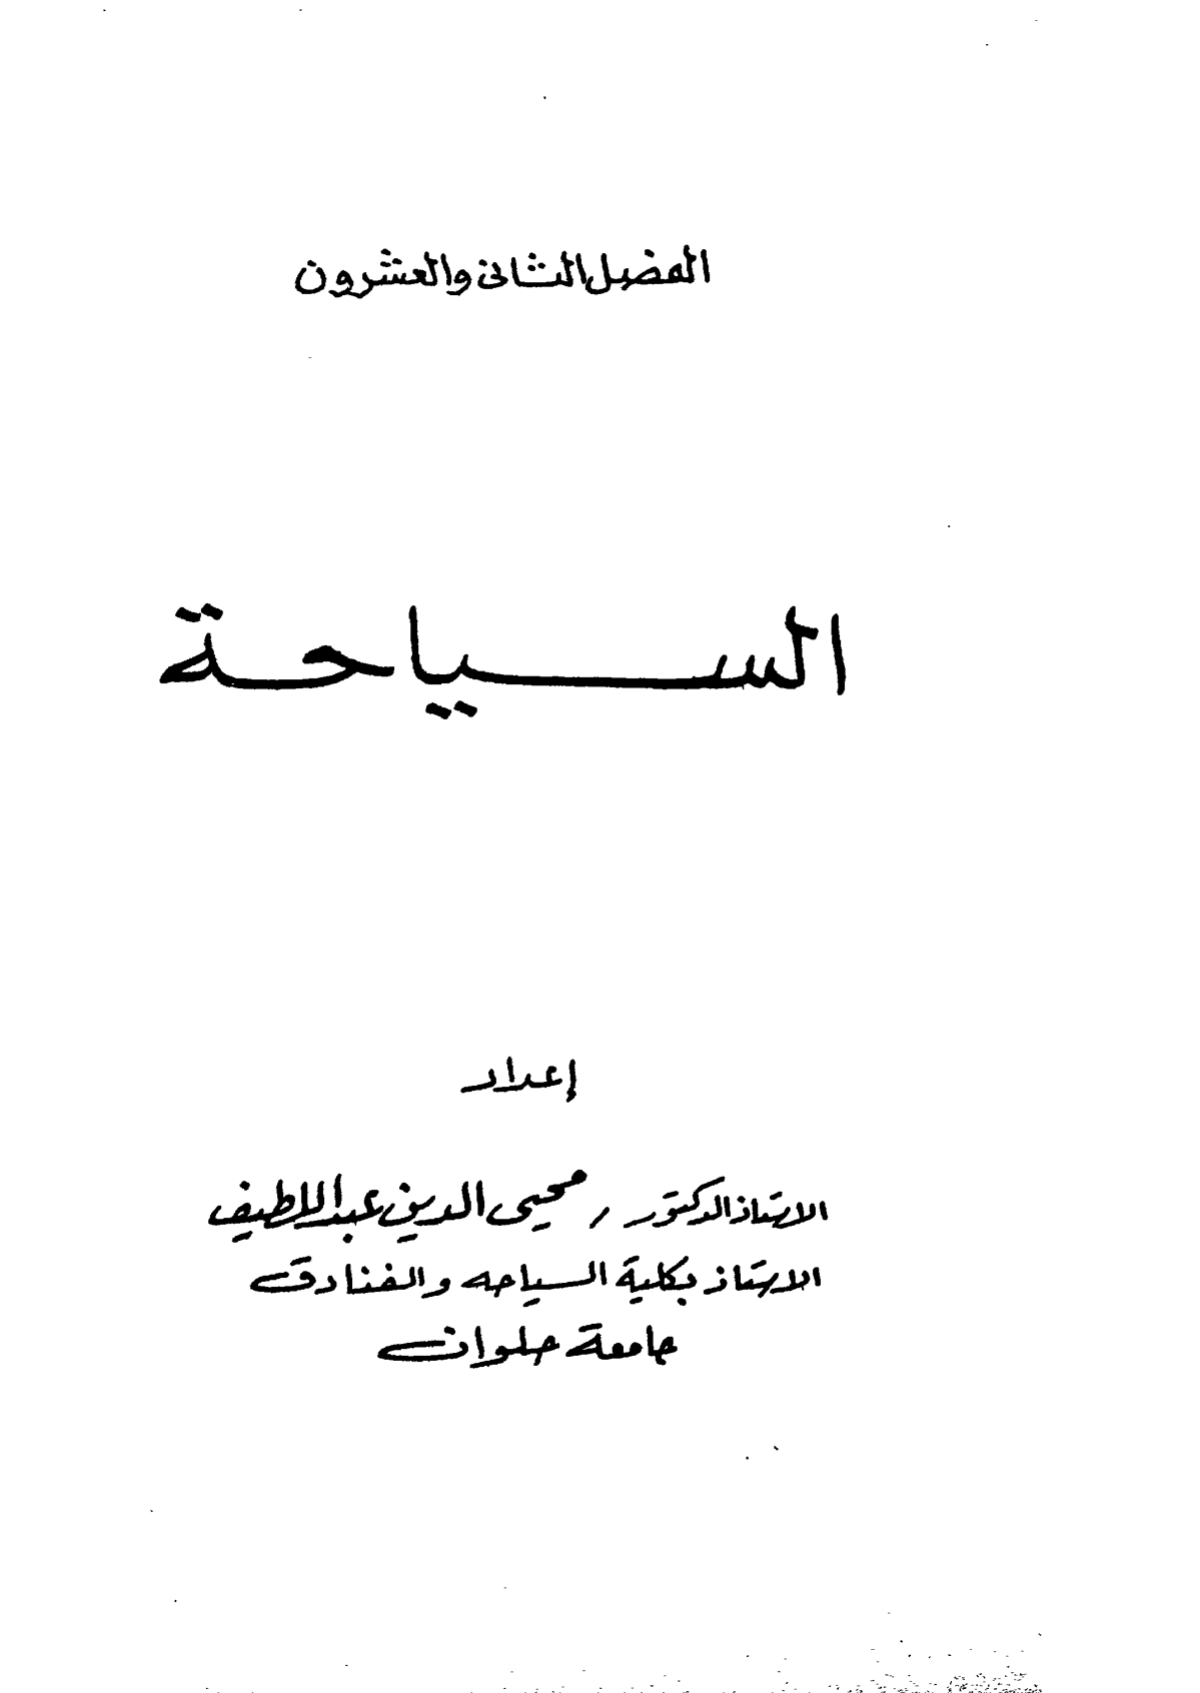 الفصل الثانى والعشرون
السياحة
إعداد
الاستاذ الدكتور / محيى الدين عبد اللطيف
الاستاذ بكلية السياحه والفنادق
جامعة حلوان